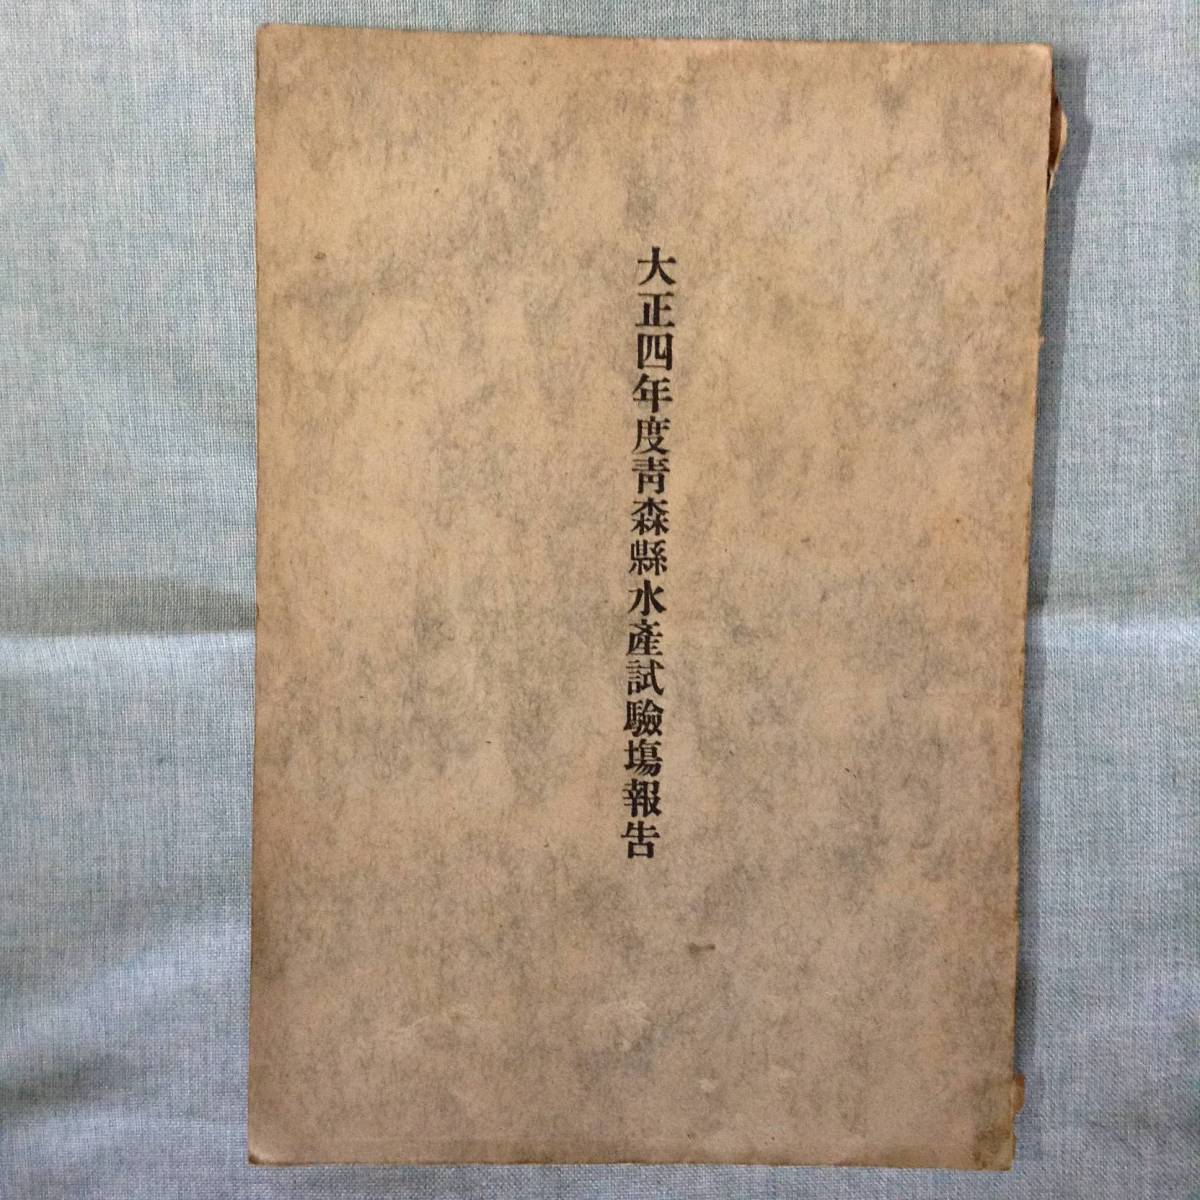 大正四年度靑森縣水產試驗塲報告